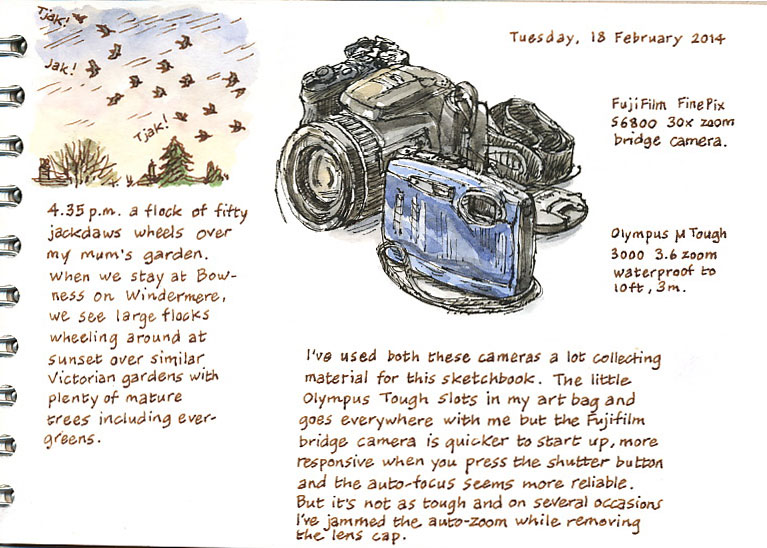 Tjak!
Jak!
Tjak!
4.35 p.m. a flock of fifty
jackdaws wheels over
my mum's garden.
When we stay at Bow-
ness on Windermere,
we see large flocks
wheeling around at
sunset over similar
Victorian gardens with
plenty of mature
trees including ever-
greens.
Tuesday, 18 February 2014
FujiFilm FinePix
S6800 30x zoom
bridge camera.
Olympus µ Tough
3000 3.6 zoom
waterproof to
10ft, 3m.
I've used both these cameras a lot collecting
material for this sketchbook. The little
Olympus Tough slots in my art bag and
goes everywhere with me but the Fujifilm
bridge camera is quicker to start up, more
responsive when you press the shutter button
and the auto-focus seems more reliable.
But it's not as tough and on several occasions
I've jammed the auto-zoom while removing
the lens cap.